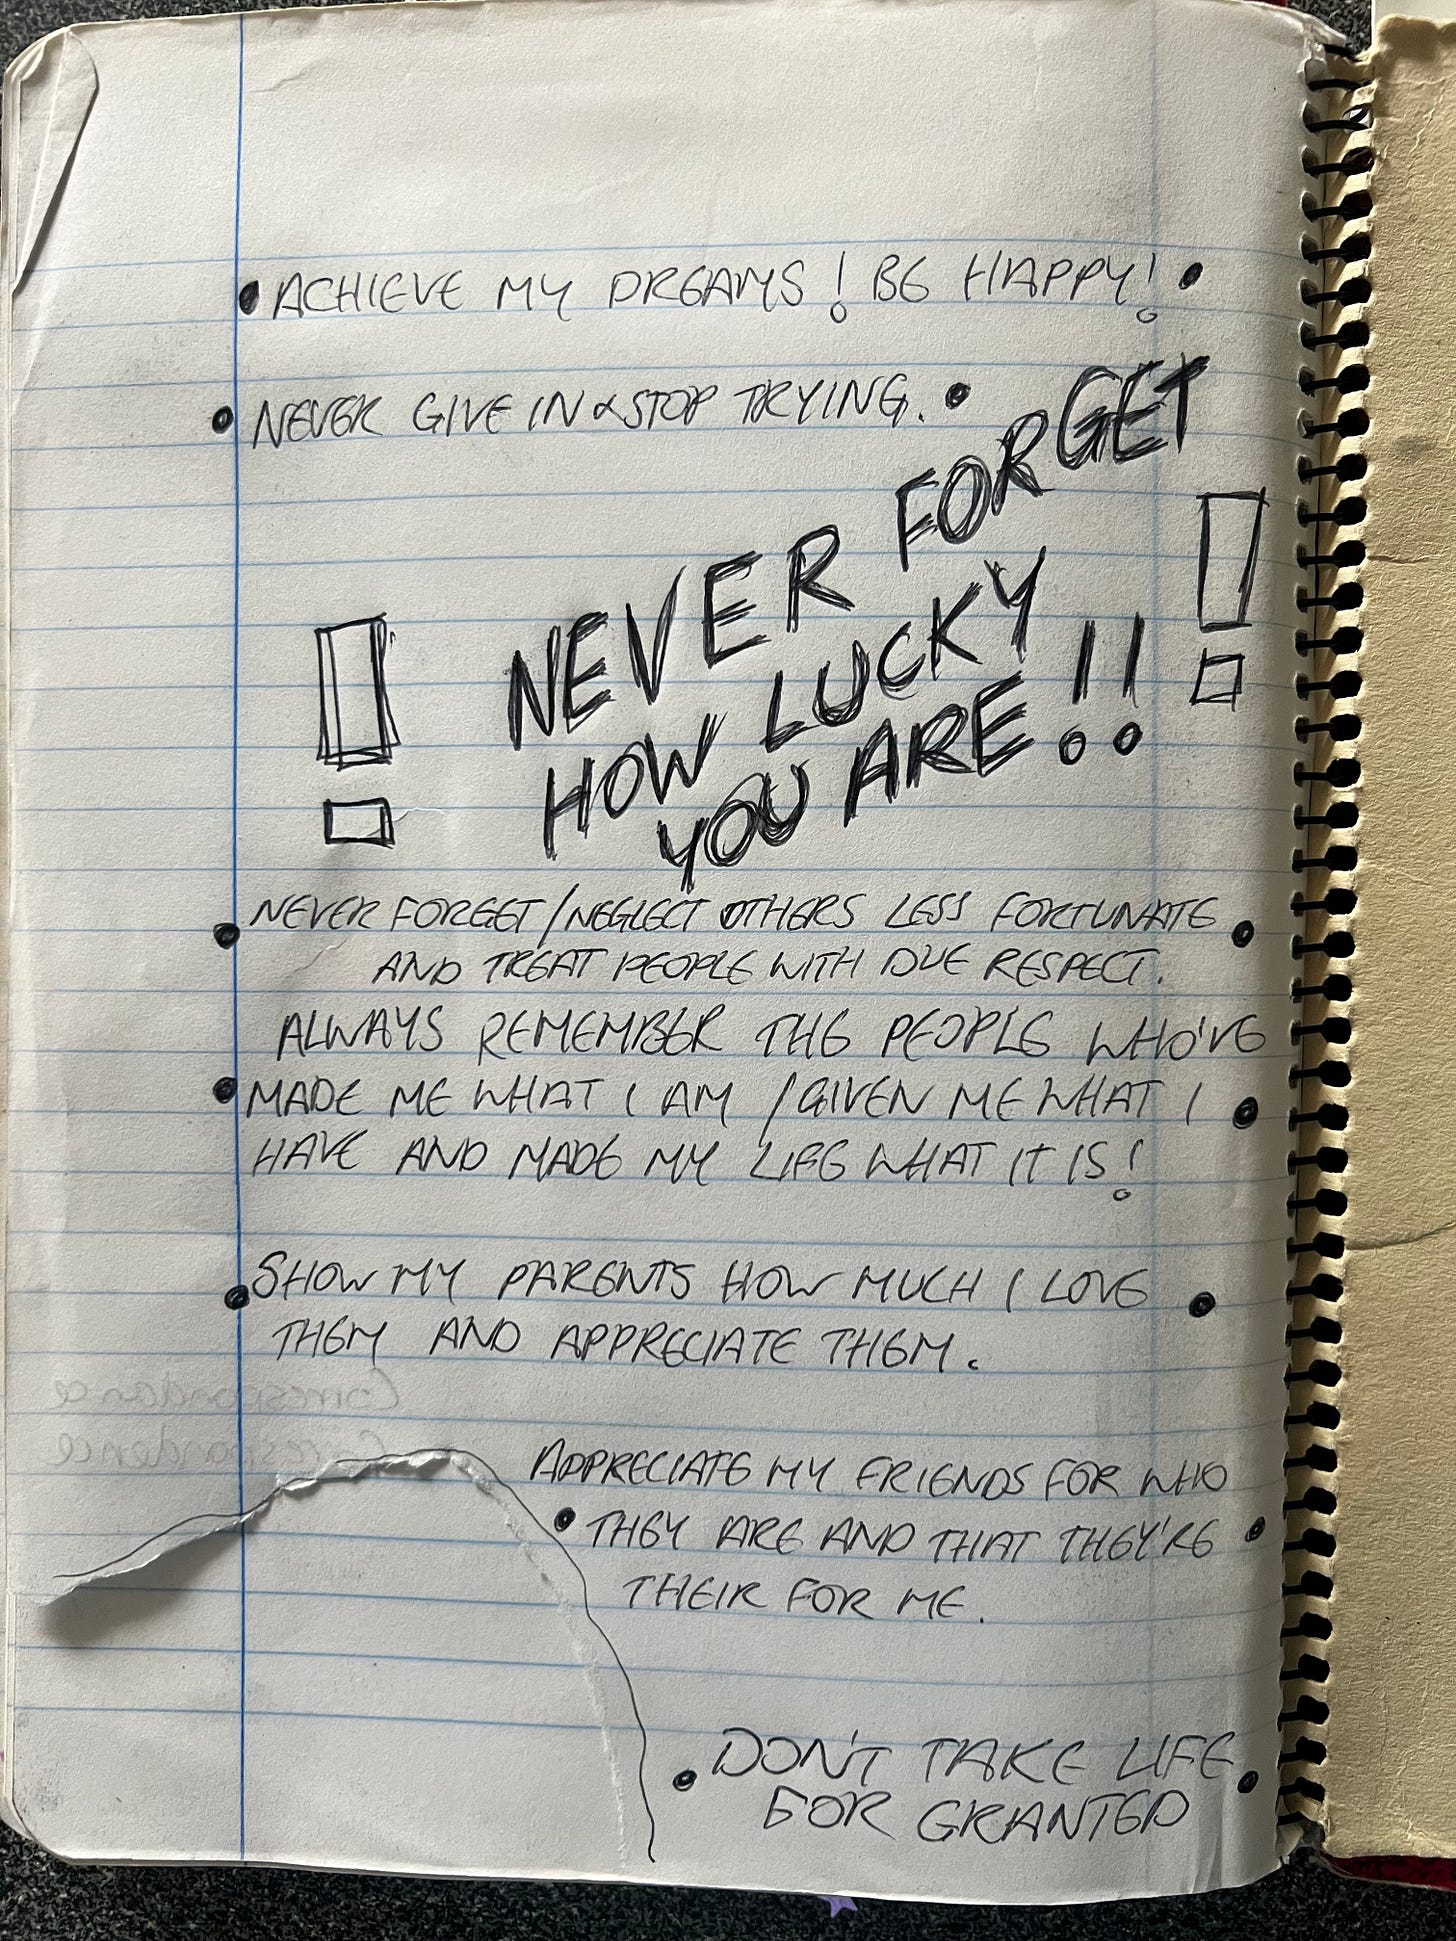 • ACHIEVE MY DREAMS! BE HAPPY! •
• NEVER GIVE IN & STOP TRYING. •
! NEVER FORGET !
HOW LUCKY
YOU ARE!!
• NEVER FORGET/NEGLECT OTHERS LESS FORTUNATE •
AND TREAT PEOPLE WITH DUE RESPECT.
ALWAYS REMEMBER THE PEOPLE WHO'VE
• MADE ME WHAT I AM /GIVEN ME WHAT I •
HAVE AND MADE MY LIFE WHAT IT IS!
• SHOW MY PARENTS HOW MUCH I LOVE •
THEM AND APPRECIATE THEM.
Correspondance
Correspondence
APPRECIATE MY FRIENDS FOR WHO
• THEY ARE AND THAT THEY'RE •
THEIR FOR ME.
• DON'T TAKE LIFE •
FOR GRANTED